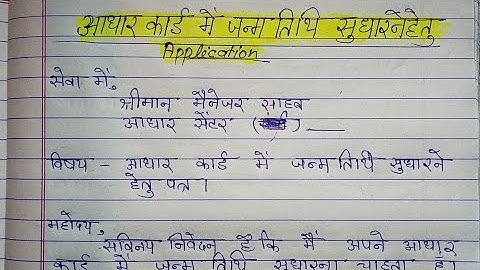 आधार कार्ड में जन्म तिथि सुधारने हेतु
Application
सेवा में,
श्रीमान मैनेजर साहब
आधार सेंटर ( ) __
विषय - आधार कार्ड में जन्म तिथि सुधारने
हेतु पत्र।
महोदय,
सविनय निवेदन है कि मैं अपने आधार
कार्ड में जन्म तिथि सुधारना चाहता हूँ